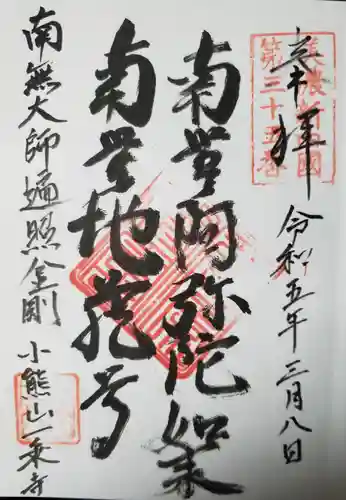 奉拝
美濃新四國
第三十五番
令和五年三月八日
南無阿弥陀如来
南無地蔵尊
南無大師遍照金剛
小熊山一乗寺